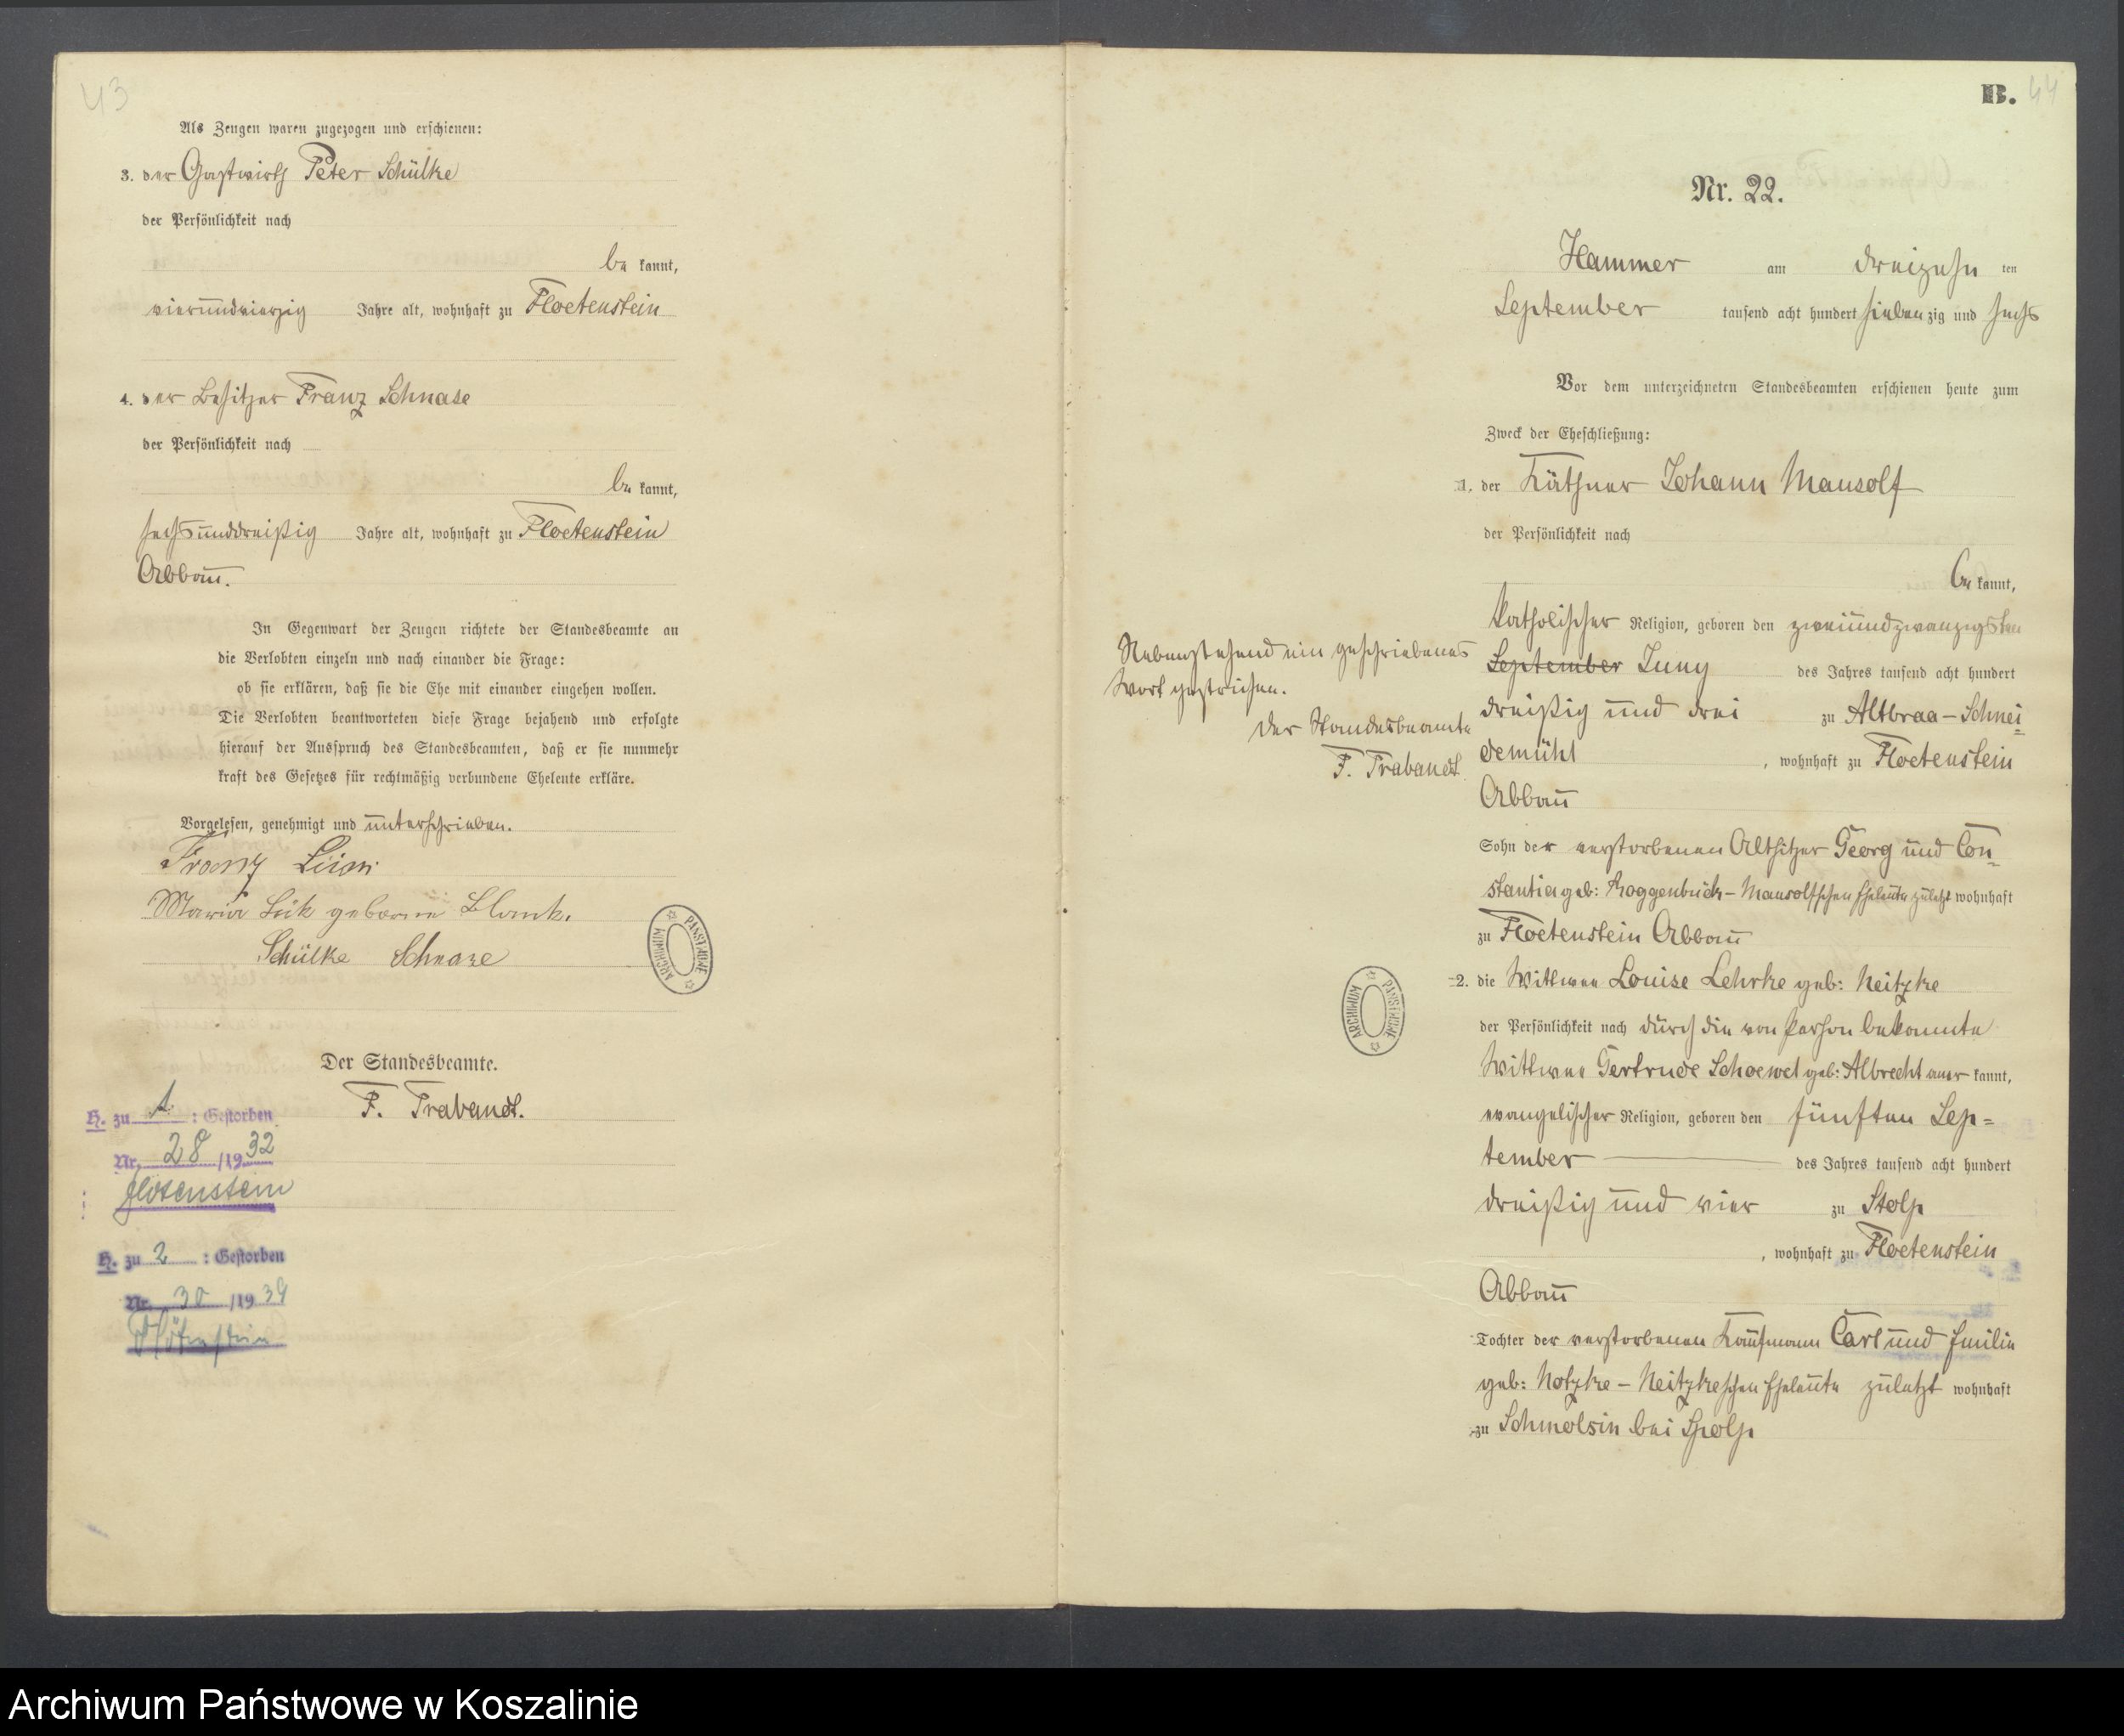 43
Als Zeugen waren zugezogen und erschienen:
3. der Gastwirth Peter Schülke
der Persönlichkeit nach
be kannt,
vierundvierzig Jahre alt, wohnhaft zu Floetenstein
4. der Besitzer Franz Schnase
der Persönlichkeit nach
be kannt,
sechsunddreißig Jahre alt, wohnhaft zu Floetenstein
Abbau.
In Gegenwart der Zeugen richtete der Standesbeamte an
die Verlobten einzeln und nach einander die Frage:
ob sie erklären, daß sie die Ehe mit einander eingehen wollen.
Die Verlobten beantworteten diese Frage bejahend und erfolgte
hierauf der Ausspruch des Standesbeamten, daß er sie nunmehr
kraft des Gesetzes für rechtmäßig verbundene Eheleute erkläre.
Vorgelesen, genehmigt und unterschrieben.
Franz
Maria geborne Blank.
Schülke Schnase
ARCHIWUM PAŃSTWOWE
Der Standesbeamte.
F. Trabandt.
H. zu 1. : Gestorben
Nr. 28 /1932
Flötenstein
H. zu 2 : Gestorben
Nr. 30 /1934
Flötenstein
B. 44
Nr. 22.
Hammer am dreizehn ten
September tausend acht hundert sieben zig und sechs
Vor dem unterzeichneten Standesbeamten erschienen heute zum
Zweck der Eheschließung:
1. der Käthner Johann Mausolf
der Persönlichkeit nach
be kannt,
katholischer Religion, geboren den zweiundzwanzigsten
September Juny des Jahres tausend acht hundert
dreißig und drei zu Altbraa-Schnei=
demühl, wohnhaft zu Floetenstein
Abbau
Sohn der verstorbenen Altsitzer Georg und Con=
stantia geb: Roggenbuck-Mausolfschen Eheleute zuletzt wohnhaft
zu Floetenstein Abbau
Nebenstehend ein geschriebenes
Wort gestrichen.
Der Standesbeamte
F. Trabandt.
ARCHIWUM PAŃSTWOWE
2. die Wittwe Louise Lehrke geb: Neitzke
der Persönlichkeit nach durch die von Person bekannte
Wittwe Gertrude Schoewel geb: Albrecht aner kannt,
evangelischer Religion, geboren den fünften Sep=
tember des Jahres tausend acht hundert
dreißig und vier zu Stolp
, wohnhaft zu Floetenstein
Abbau
Tochter der verstorbenen Kaufmann Carl und Emilie
geb: Notzke - Neitzkeschen Eheleute zuletzt wohnhaft
zu Schmolsin bei Stolp
Archiwum Państwowe w Koszalinie